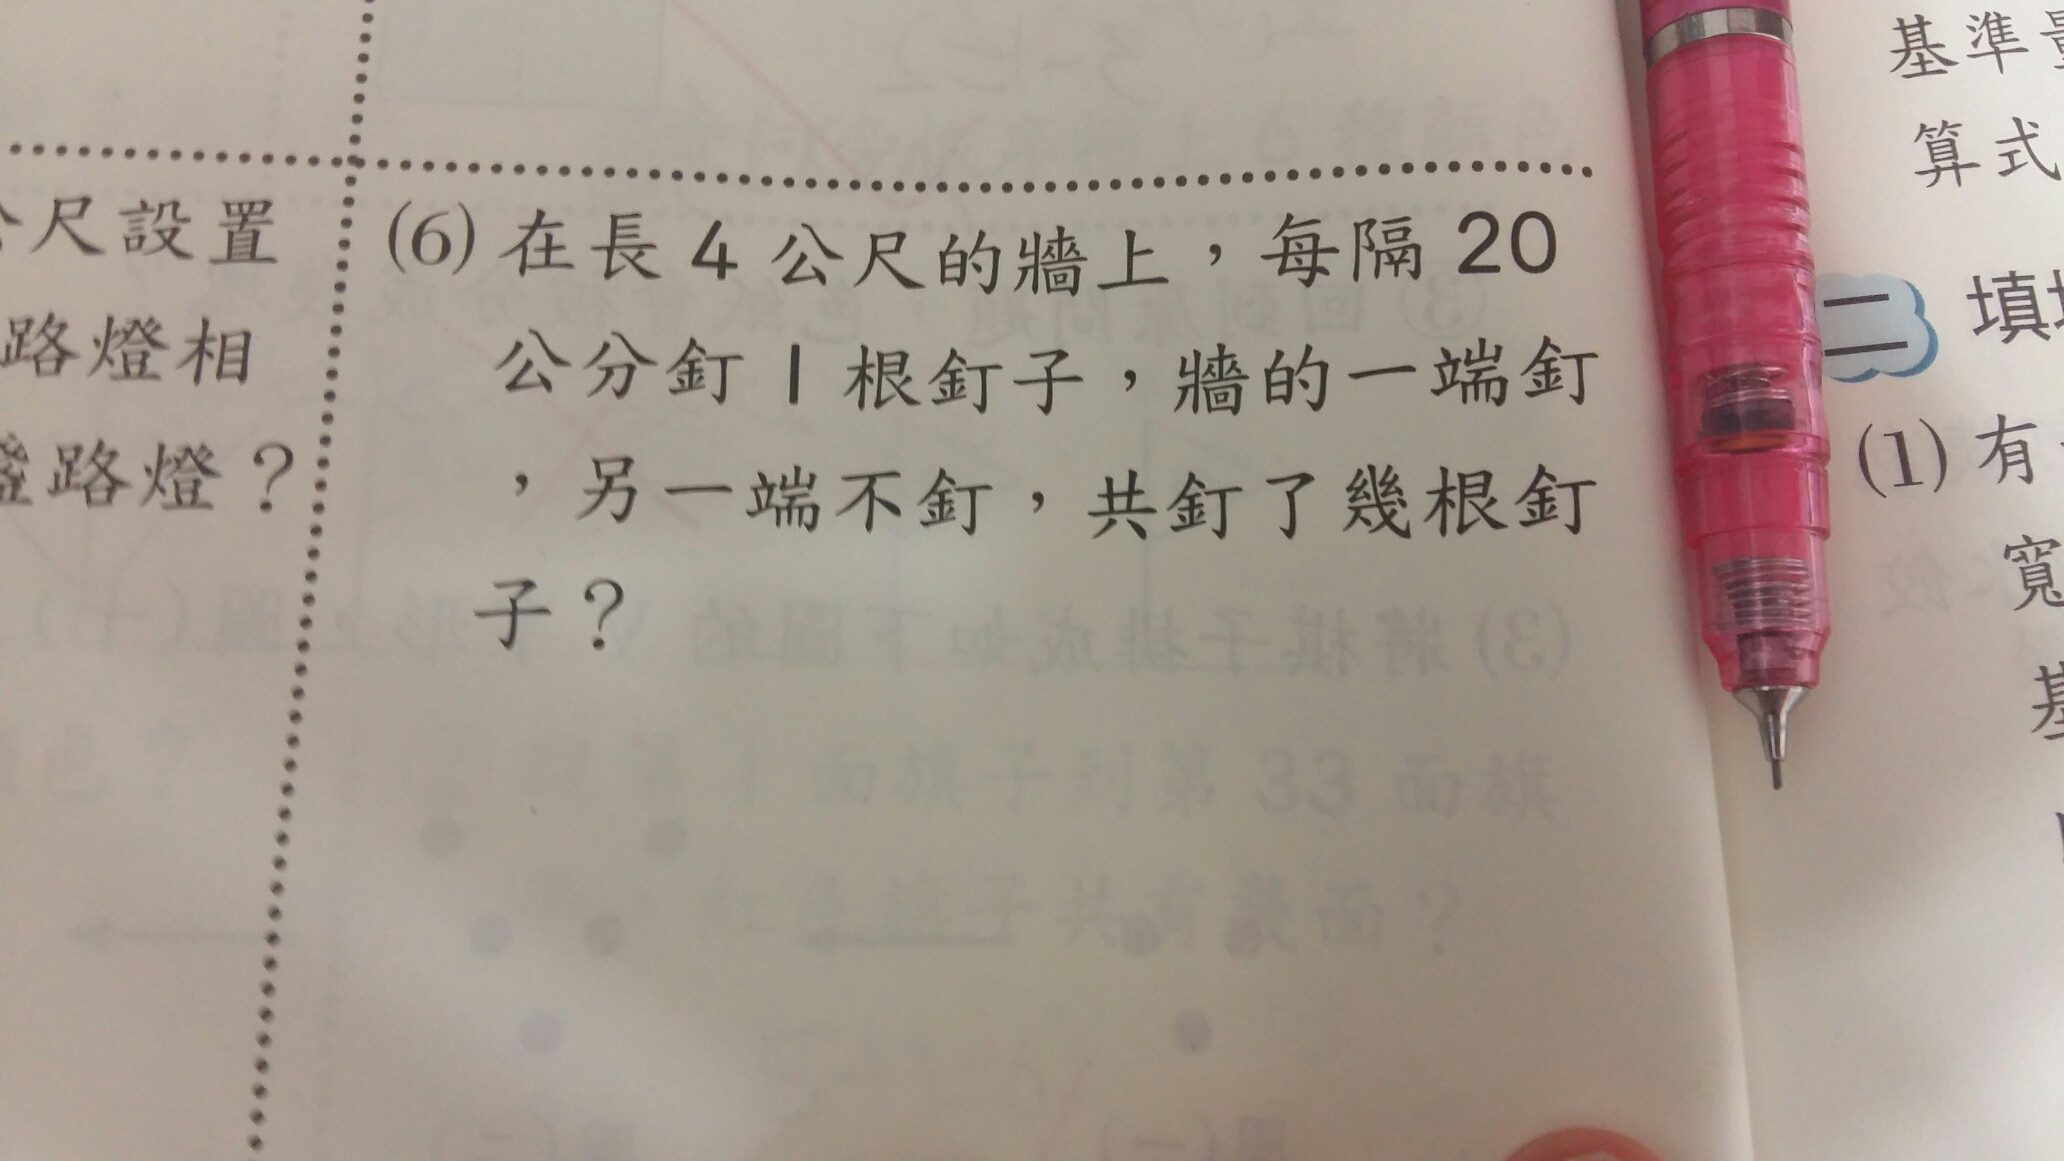 尺設置
路燈相
路燈？
(6) 在長 4 公尺的牆上，每隔 20
公分釘 1 根釘子，牆的一端釘
，另一端不釘，共釘了幾根釘
子？
基準
算式
二 填
(1) 有
寬